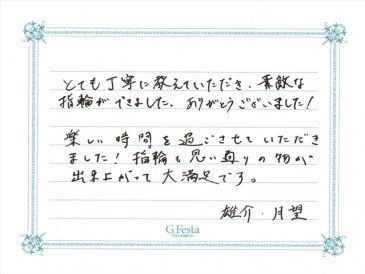 とても丁寧に教えていただき、素敵な
指輪ができました。ありがとうございました！
楽しい時間を過ごさせていただき
ました！指輪も思い通りの物が
出来上がって大満足です。
雄介・月望
G.Festa